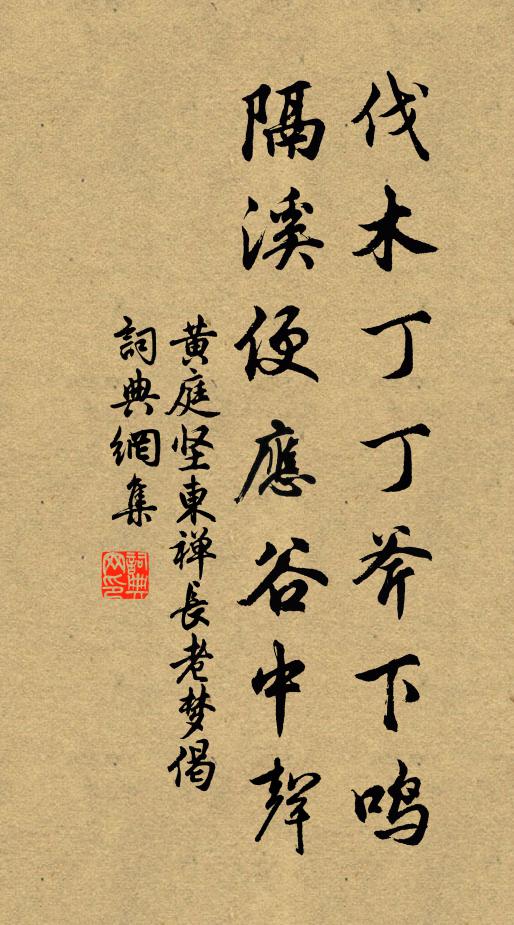 伐木丁丁斧下鸣
隔溪便應谷中聲
黄庭坚東禅長老梦偈
詞典網集
詞典网印